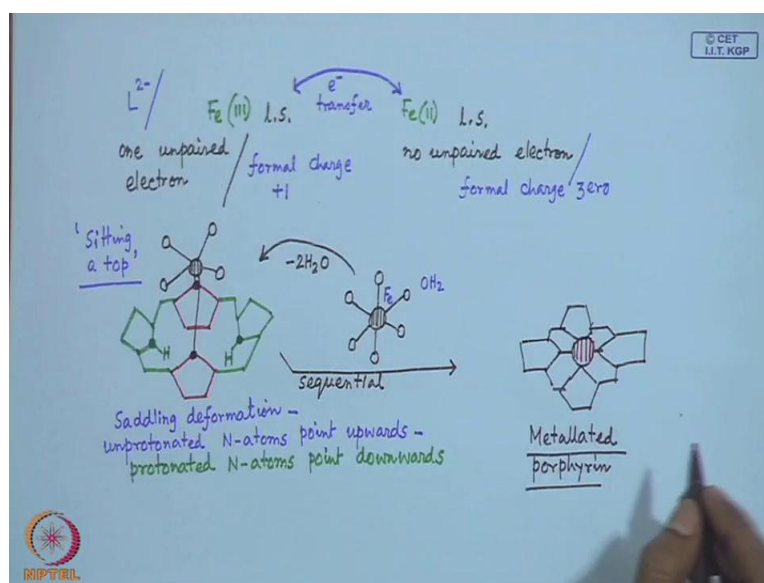 © CET
I.I.T. KGP
L2-/
Fe (III) l.s.
e- transfer
Fe(II) l.s.
one unpaired electron
/ formal charge +1
no unpaired electron /
formal charge / zero
'Sitting a top'
-2H2O
Fe
OH2
H
H
sequential
Saddling deformation –
unprotonated N-atoms point upwards –
protonated N-atoms point downwards
Metallated
porphyrin
NPTEL